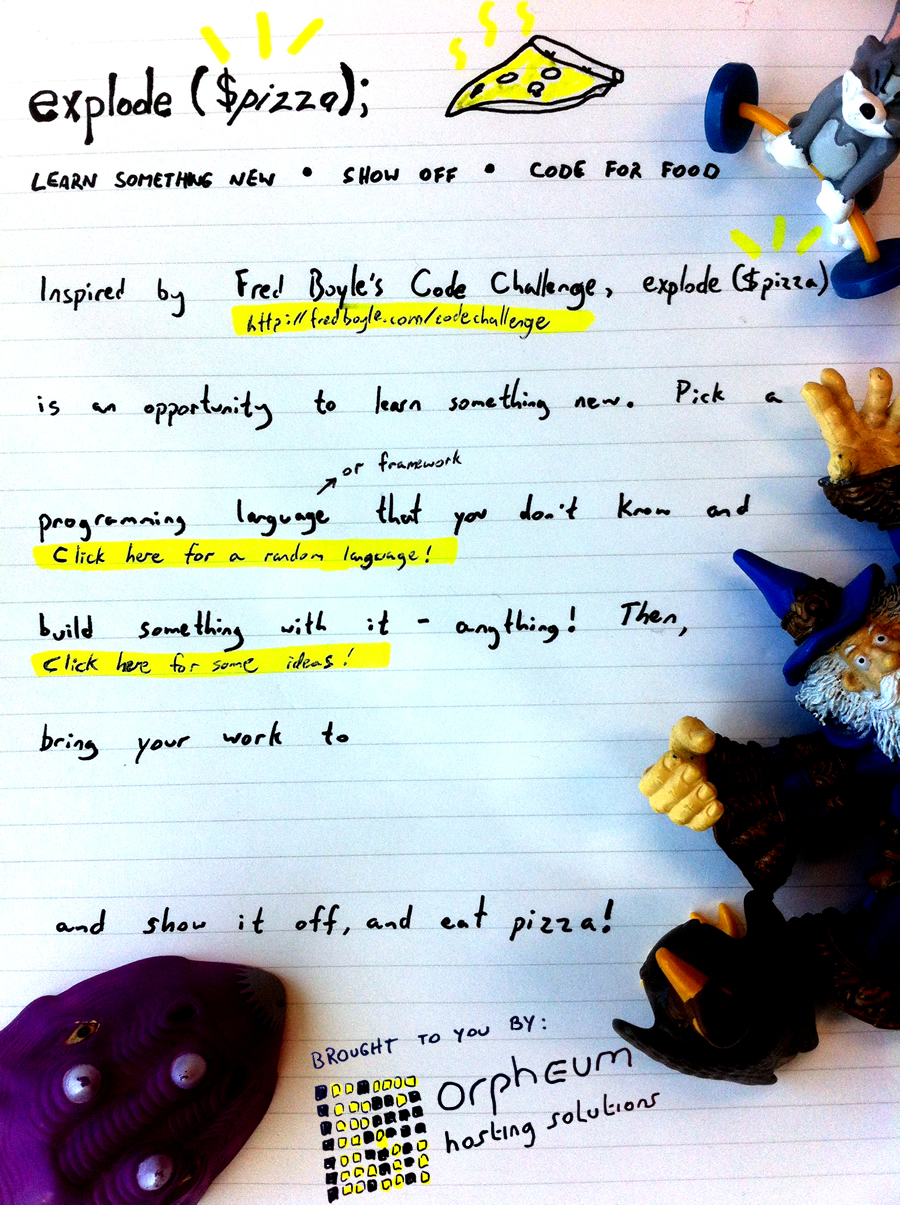 explode ($pizza);
LEARN SOMETHING NEW • SHOW OFF • CODE FOR FOOD
Inspired by Fred Boyle's Code Challenge, explode ($pizza)
http://fredboyle.com/codechallenge
is an opportunity to learn something new. Pick a
or framework
programming language that you don't know and
Click here for a random language!
build something with it - anything! Then,
Click here for some ideas!
bring your work to
and show it off, and eat pizza!
BROUGHT TO YOU BY:
orpheum
hosting solutions